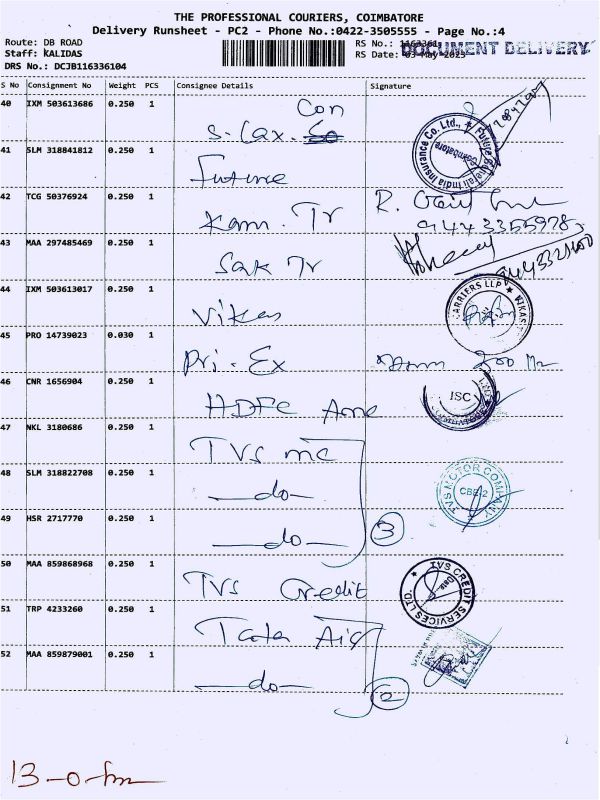 THE PROFESSIONAL COURIERS, COIMBATORE
Delivery Runsheet - PC2 - Phone No.:0422-3505555 - Page No.:4
Route: DB ROAD
Staff: KALIDAS
DRS No.: DCJB116336104
RS No.:
DOCUMENT DELIVERY
RS Date: 03-May-2025
S No Consignment No Weight PCS Consignee Details Signature
40 IXM 503613686 0.250 1
Con
Future Generali India Insurance Co. Ltd.,
Coimbatore
41 SLM 318841812 0.250 1 Future
42 TCG 50376924 0.250 1 Kam. Tr R.
9443355978
43 MAA 297485469 0.250 1 Sak Tr
44 IXM 503613017 0.250 1 Vikas
CARRIERS LLP ★ VIKAS
45 PRO 14739023 0.030 1 Pri. Ex
46 CNR 1656904 0.250 1 HDFC
ISC
47 NKL 3180686 0.250 1 TVS mc
48 SLM 318822708 0.250 1 —do—
TVS MOTOR COMPANY
CBE-2
49 HSR 2717770 0.250 1 —do— 3
50 MAA 859868968 0.250 1 TVS Credit
TVS CREDIT SERVICES LTD.
51 TRP 4233260 0.250 1 Tata Aig
52 MAA 859879001 0.250 1 —do— 2